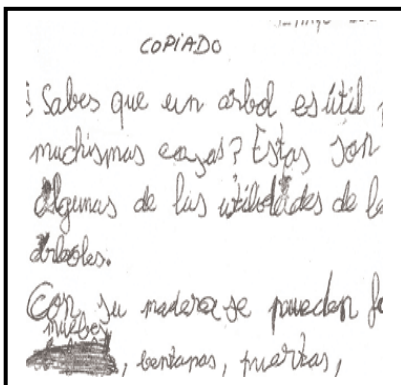 COPIADO
¿Sabes que un arbol es útil
muchismas cosas? Estas son
Algunas de las utilidades de
árboles.
Con su madera se pueden
muebes
, bentanas, puertas,